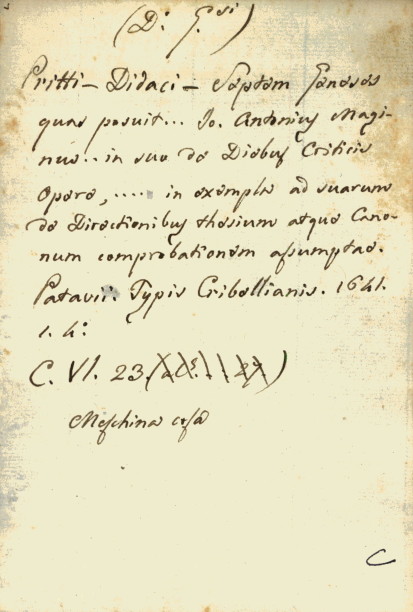 (D: G.si)
Pritti – Didaci – Septem Geneses
quas posuit... Jo. Antonius Magi-
nus.. in suo de Diebus Criticis
Opere, .... in exempla ad suarum
de Directionibus thesium atque Cano-
num comprobationem assumptae.
Patavii. Typis Cribellianis. 1641.
1. 4:
C. VI. 23.
Meschina cosa
C